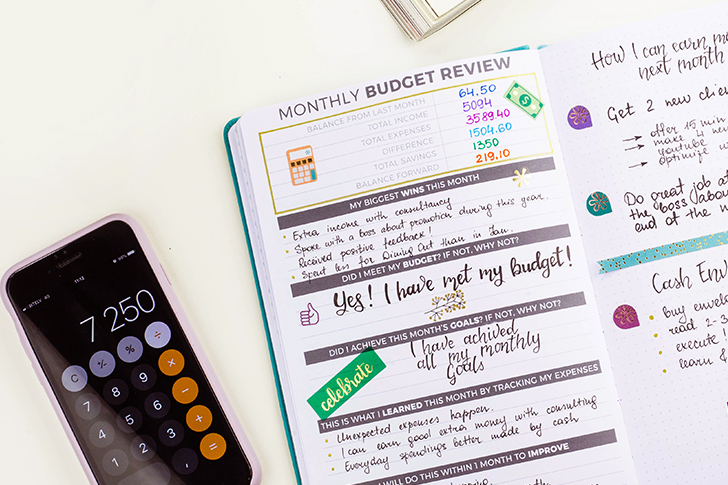 MONTHLY BUDGET REVIEW
BALANCE FROM LAST MONTH 64.50
TOTAL INCOME 5094
TOTAL EXPENSES 3589.40
DIFFERENCE 1504.60
TOTAL SAVINGS 1350
BALANCE FORWARD 219.10
MY BIGGEST WINS THIS MONTH
Extra income with consultancy
Spoke with a boss about promotion during this year.
Received positive feedback!
Spent less for Dining Out than in Jan.
DID I MEET MY BUDGET? IF NOT, WHY NOT?
Yes! I have met my budget!
DID I ACHIEVE THIS MONTH'S GOALS? IF NOT, WHY NOT?
I have achived
all my monthly
goals
celebrate
THIS IS WHAT I LEARNED THIS MONTH BY TRACKING MY EXPENSES
Unexpected expenses happen.
I can earn good extra money with consulting
Everyday spendings better made by cash
I WILL DO THIS WITHIN 1 MONTH TO IMPROVE
How I can earn
next month
Get 2 new
15 min
make 4
youtube
Do great job at
the boss
end of the
Cash
Buy
read 2-3
execute!
learn
11:13
7 250
C
%
÷
7
8
9
×
4
5
6
-
1
2
3
+